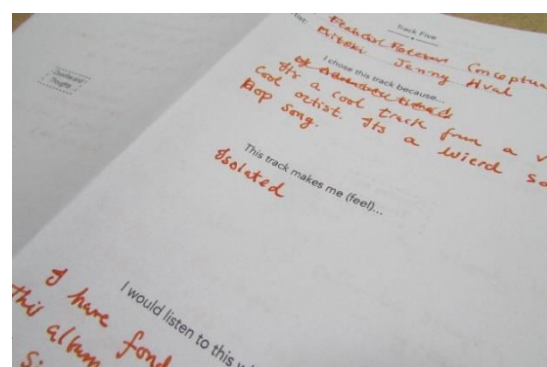 Track Five
Conceptual
Jenny Hval
I chose this track because...
Its a cool track from a v
cool artist. Its a wierd so
Pop song.
This track makes me (feel)...
Isolated
I would listen to this
I have fond
this album
Si